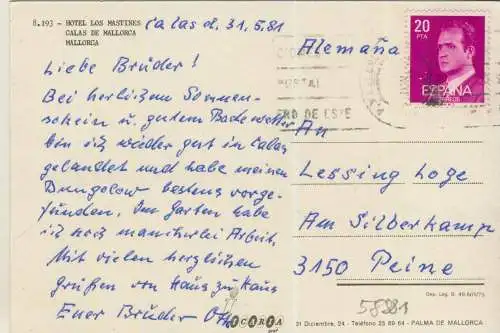 8.193 - HOTEL LOS MASTINES
CALAS DE MALLORCA
MALLORCA
Calas d. 31.5.81
Liebe Brüder!
Bei herlichem Sonnen-
schein u. gutem Badewetter
bin ich wieder gut in Calas
gelandet und habe meinen
Bungelow bestens vorge-
funden. Im Garten habe
ich noch mancherlei Arbeit.
Mit vielen herzlichen
grüßen von Haus zu Haus
Euer Bruder Otto
Alemaña
20
PTA
ESPAÑA
An
Lessing Loge
Am Silberkamp
3150 Peine
Dep. Leg. B.
58381
ESCUDO DE ORO
31 Diciembre, 24. - Teléfono 25 89 64 - PALMA DE MALLORCA